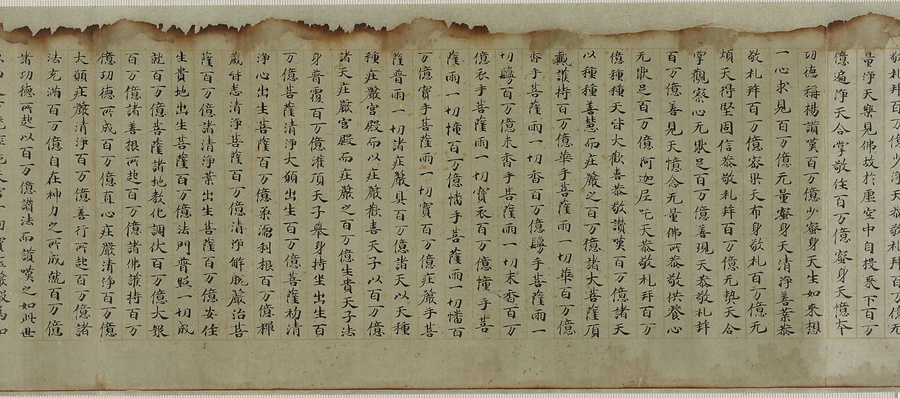 量淨天樂見佛故於虛空中自投來下百万
億遍淨天合掌敬住百万億密身天憶本
功德稱揚讚嘆百万億少密身天生如來想
一心求見百万億无量密身天清淨善業恭
敬礼拜百万億密果天布身敬礼百万億无
煩天得堅固信恭敬礼拜百万億无熱天合
掌觀察心无猒足百万億善現天恭敬礼拜
百万億善見天憶念无量佛所恭敬供養心
无猒足百万億阿迦尼吒天恭敬礼拜百万
億種種天皆大歡喜恭敬讚嘆百万億諸天
以種種善慧而莊嚴之百万億諸大菩薩頂
戴護持百万億華手菩薩雨一切華百万億
香手菩薩雨一切香百万億鬘手菩薩雨一
切鬘百万億末香手菩薩雨一切末香百万
億衣手菩薩雨一切寶衣百万億幢手菩
薩雨一切幢百万億幡手菩薩雨一切幡百
万億寶手菩薩雨一切寶百万億莊嚴手菩
薩普雨一切諸莊嚴具百万億諸天以天種
種莊嚴宮殿而以莊嚴歡喜天子以百万億
諸天莊嚴宮殿而莊嚴之百万億生貴天子法
身普覆百万億灌頂天子舉身持坐出生百
万億菩薩清淨大願出生百万億菩薩初清
淨心出生菩薩百万億柔濡利根百万億禪
嚴皆悉清淨菩薩百万億清淨解脫嚴治菩
薩百万億諸清淨業出生菩薩百万億安住
生貴地出生菩薩百万億法門普照一切成
就百万億菩薩諸地教化調伏百万億大眼
百万億諸善根所起百万億諸佛護持百万
億功德所成百万億直心莊嚴清淨百万億
大願莊嚴清淨百万億善行所起百万億諸
法充滿百万億自在神力之所成就百万億
諸功德所起以百万億讚法而讚嘆之如此世